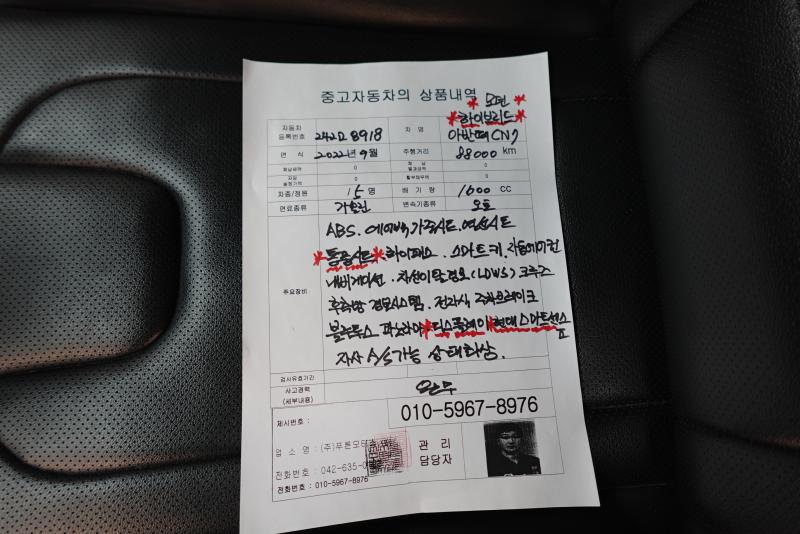 중고자동차의 상품내역
*모던*
*하이브리드*
자동차 등록번호 242모8918 차명 아반떼CN7
연식 2022년9월 주행거리 88000 km
체납세액 0 체납 불과금액 0
저당 0 할부채무액 0
차종/정원 15명 배기량 1600 CC
연료종류 가솔린 변속기종류 오토
주요장비
ABS. 에어백, 가죽시트, 열선시트
*통풍시트* 하이패스. 스마트키. 자동에어컨
내비게이션. 차선이탈경보(LDWS) 크루즈
후측방 경보시스템. 전자식 주차브레이크
블루투스 *디스플레이*현대스마트센스
자사 A/S가능 상태최상.
검사유효기간
사고경력 (세부내용)
제시번호 :
010-5967-8976
업소명 : (주)푸른모터스
관리 담당자
전화번호 : 042-635-0
전화번호 : 010-5967-8976